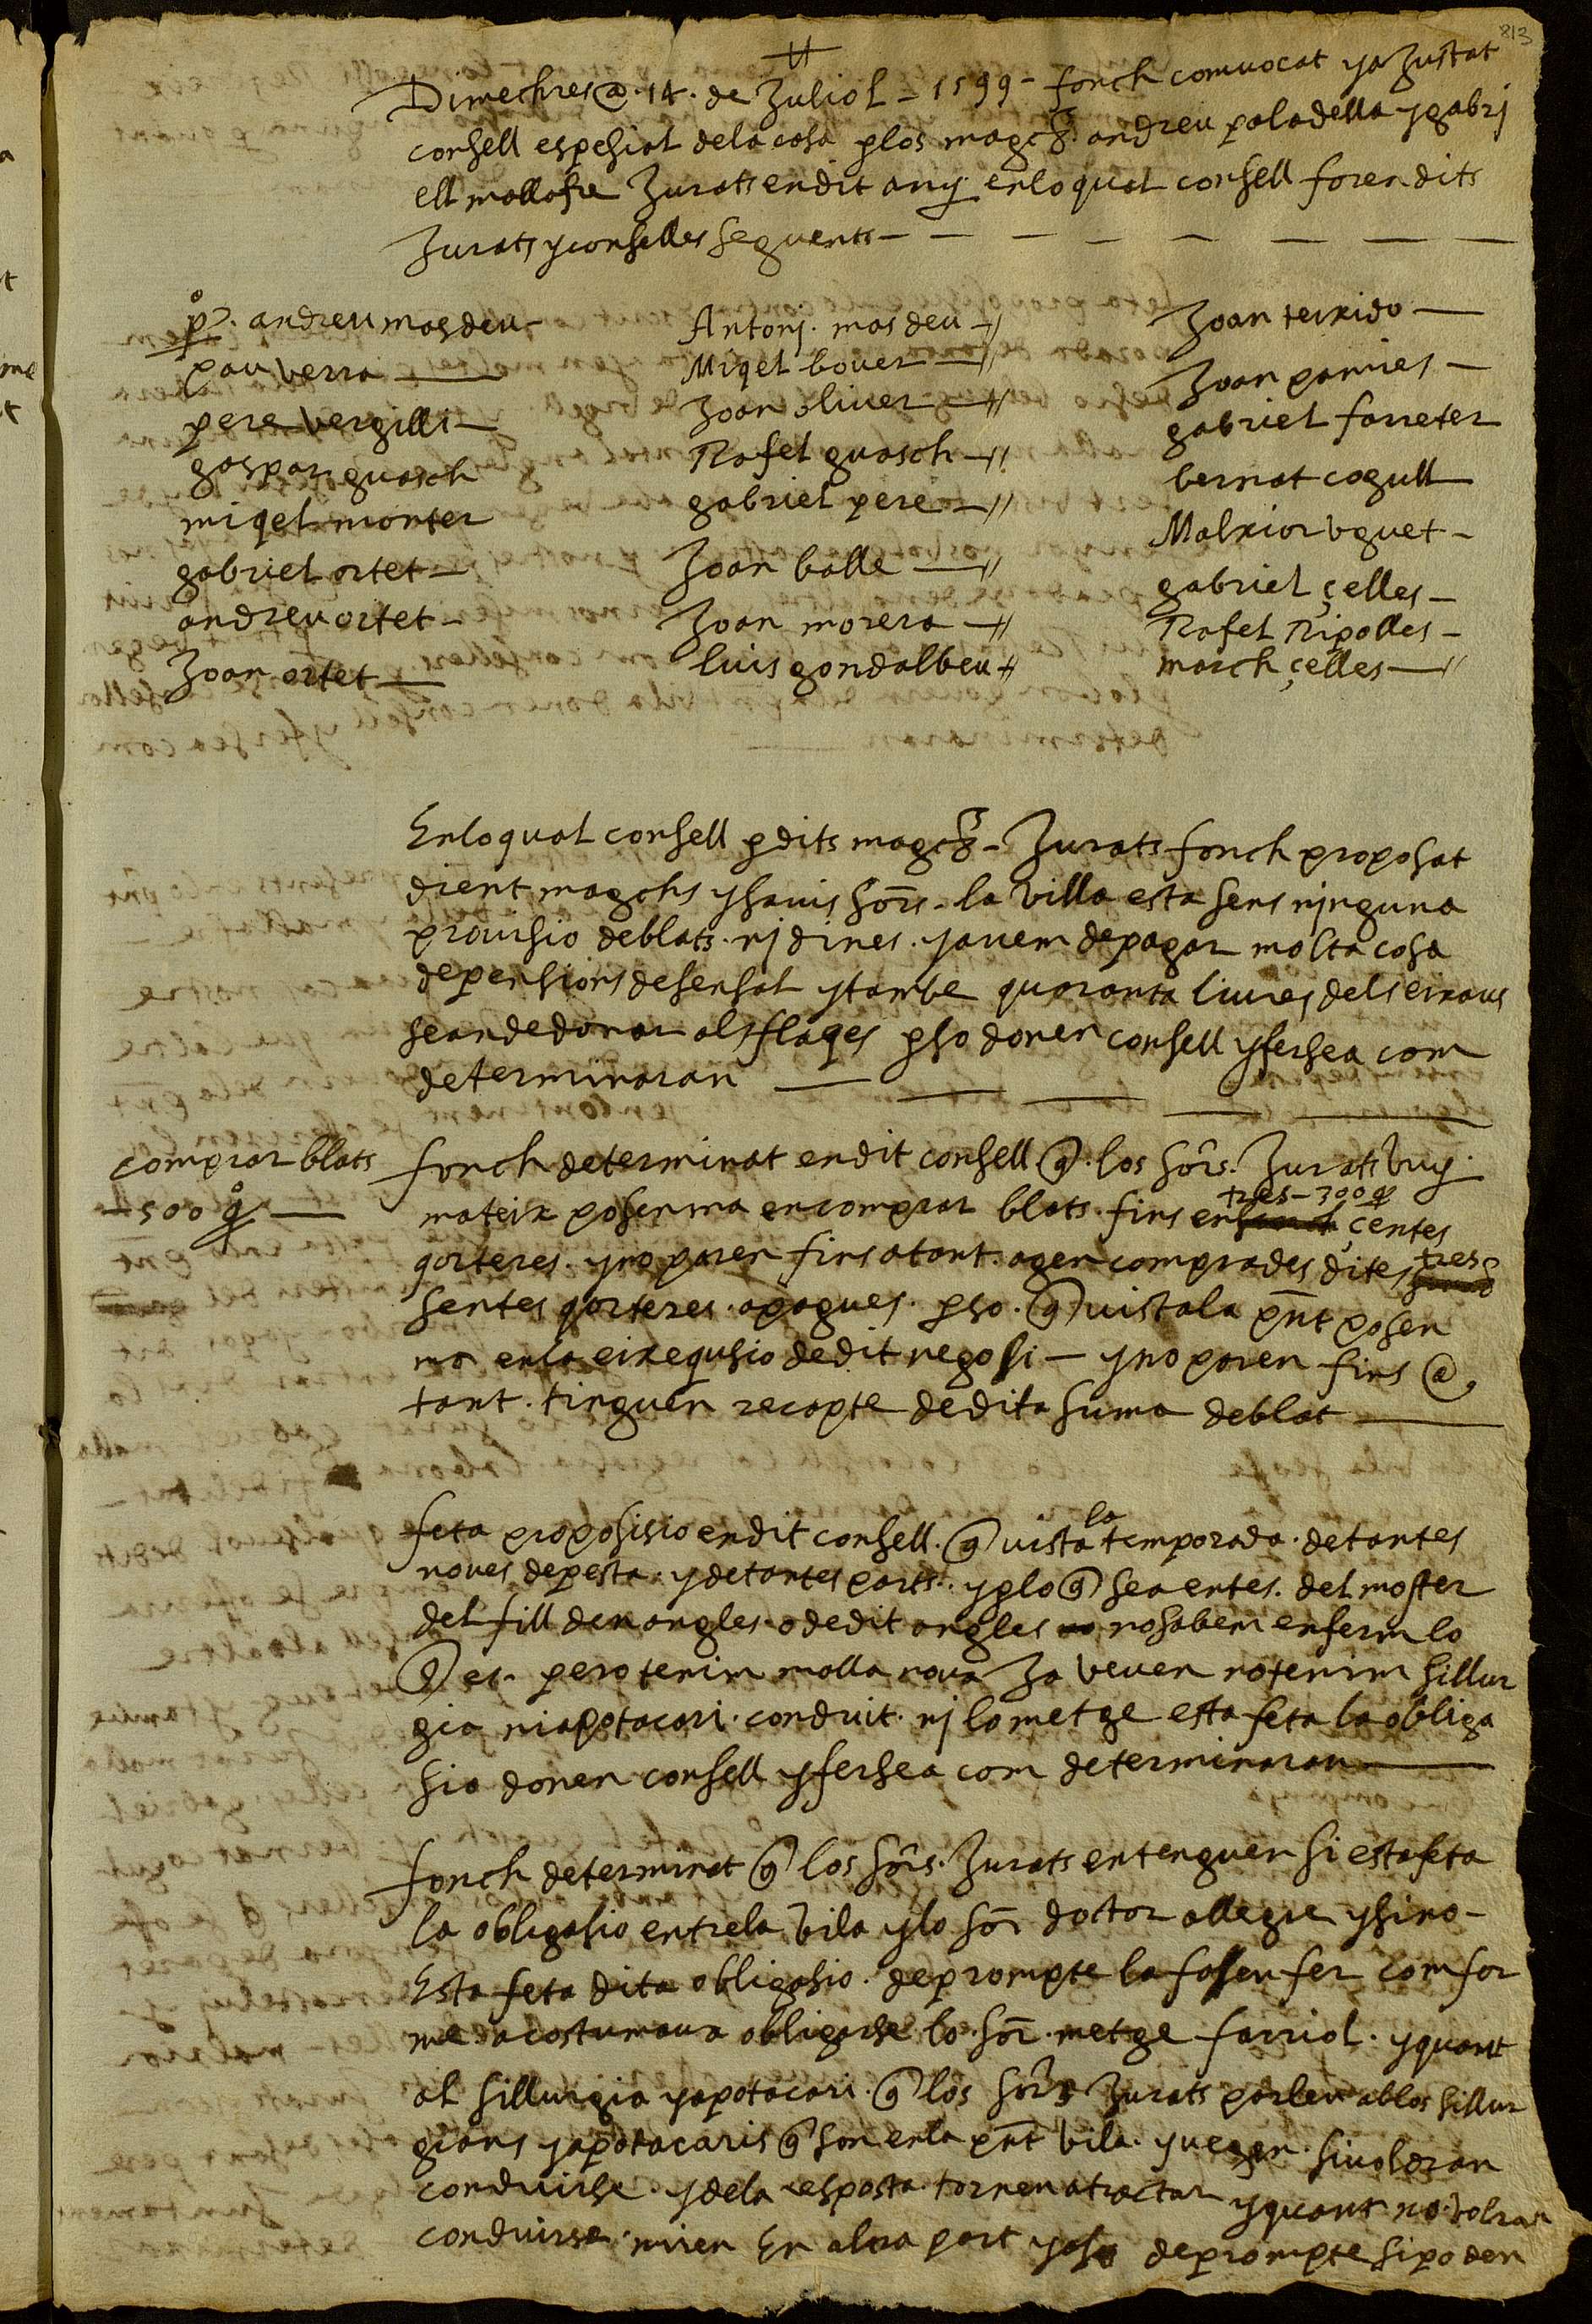 813
Dimechres @ 14 de Juliol - 1599 - fonch comvocat y a Justat
consell espesial de la casa plos magchs andreu paladella y gabri
ell mallafre Jurats en dit any en lo qual consell foren dits
Jurats y conselles seguents
po. andreu masdeu
pau verra
pere vergilli
gaspar guasch
miqel monter
gabriel ortet
andreu ortet
Joan ortet
Antonj. mas deu
Miqel bover
Joan oliver
Rafel guasch
gabriel pere
Joan balle
Joan morera
luis gondalbeu
Joan teixido
Joan pamies
gabriel farreter
bernat cogull
Malxior uguet
gabriel çelles
Rafel Ripolles
march çelles
En lo qual consell p dits magchs - Jurats fonch proposat
dient magchs y savis sors - la villa esta sens ninguna
provisio de blats nj dines y avem de pagar molta cosa
de pensions de sensal y tambe quaranta liures dels eixaus
se an de donar als flaqes pso donen consell y fer sea com
determinaran
comprar blats
500 q
fonch determinat en dit consell q los sors. Jurats vuy
mateix posen ma en comprar blats fins en tres - 300 q çentes
qorteres y no paren fins atant agen comprades dites tres
sentes qorteres apagues pso q vista la pnt posen
ma en la eixequsio de dit negosi - y no paren fins @
tant tinguen recapte de dita suma de blat
feta proposisio en dit consell q vista la temporada de tantes
noves de pesta y de tantes parts y plo q sea entes del moster
del fill den angles o de dit angles no saben en ferm lo
q es pero tenim malla nova Ja veuen no tenim sillur
gia ni apotacari conduit nj lo metge esta feta la obliga
sio donen consell y fer sea com determinaran
fonch determinat q los sors Jurats entenguen si esta feta
la obligasio entre la vila y lo sor doctor allegre y si no
Esta feta dita obligasio de prompte la fasen fer comfor
me acostumava obligarse lo sor metge farriol y quant
al sillurgia y apotacari q los sors Jurats parlen ab los sillur
gians y apotacaris q son en la pnt vila y vegen si volran
conduirse y de la resposta tornen a tractar y quant no volran
conduirse miren En altra part y aso de prompte si poden